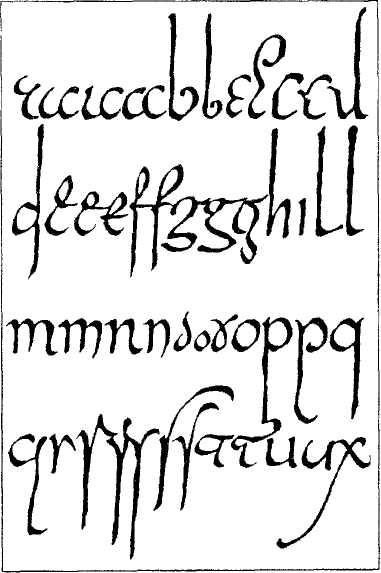 a a a b b c c c c d
d e e e f f g g g h i l l
m m n n o o o o p p q
q r r r r s s s t t u u x